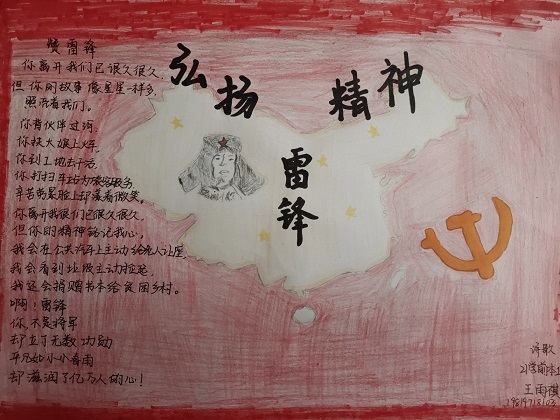 赞雷锋
你离开我们已很久很久
但你的故事像星星一样多,
照耀着我们。
你背伙伴过河
你扶大娘上车
你到工地去干活
你打扫车站为旅客服务
辛苦劳累脸上却露着微笑。
你离开我们已很久很久,
但你的精神铭记我心。
我会在公共汽车上主动给老人让座
我会看到垃圾主动捡起
我还会捐赠书本给贫困乡村。
啊!雷锋
你,不是将军
却立了无数功勋
平凡如小小春雨
却滋润了亿万人的心!
弘扬
雷锋
精神
诗歌
王雨祺